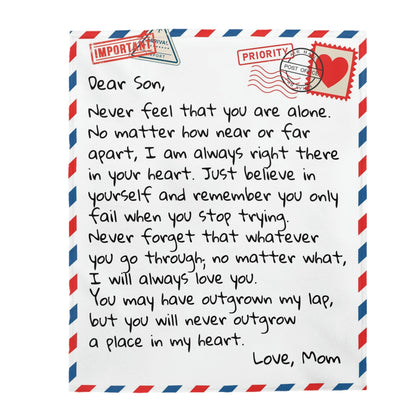 IMPORTANT
PRIORITY
POST OFFICE
Dear Son,
Never feel that you are alone.
No matter how near or far
apart, I am always right there
in your heart. Just believe in
yourself and remember you only
fail when you stop trying.
Never forget that whatever
you go through; no matter what,
I will always love you.
You may have outgrown my lap,
but you will never outgrow
a place in my heart.
Love, Mom